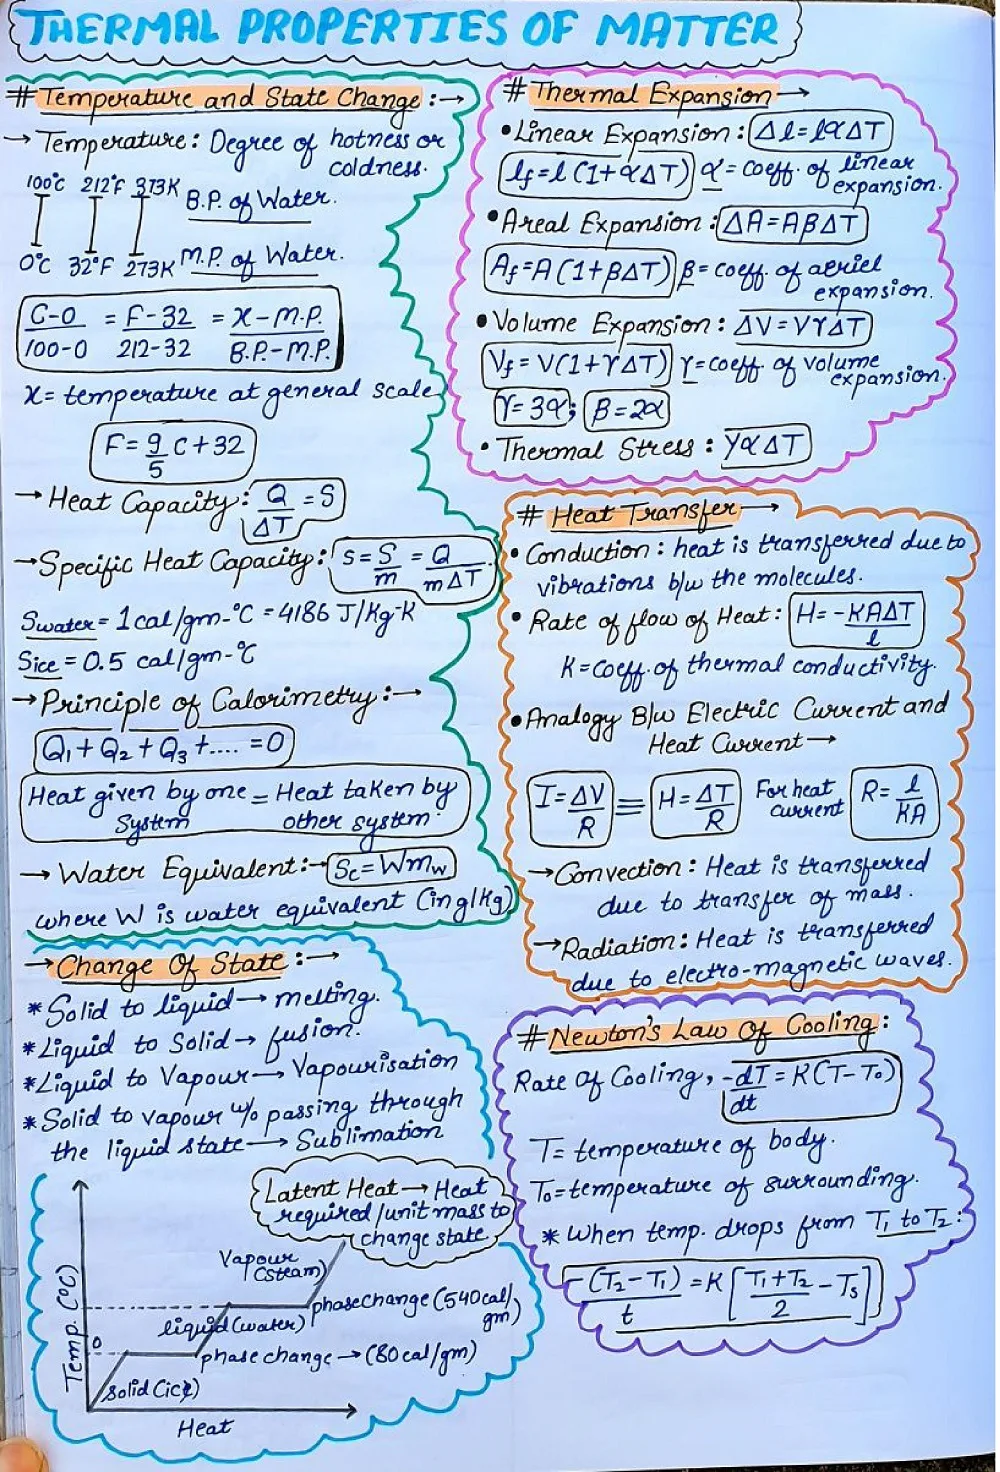 THERMAL PROPERTIES OF MATTER
# Temperature and State Change :→
→ Temperature : Degree of hotness or
coldness.
100°C 212°F 373K B.P. of Water.
0°C 32°F 273K M.P. of Water.
C-0/100-0 = F-32/212-32 = x-M.P./B.P.-M.P.
x = temperature at general scale
F = 9/5 C + 32
→ Heat Capacity : Q/ΔT = S
→ Specific Heat Capacity : s = S/m = Q/mΔT
Swater = 1 cal/gm-°C = 4186 J/Kg-K
Sice = 0.5 cal/gm-°C
→ Principle of Calorimetry :→
Q₁ + Q₂ + Q₃ + .... = 0
Heat given by one = Heat taken by
System other system.
→ Water Equivalent :→ Sc = Wmw
where W is water equivalent (in g/Kg)
→ Change Of State :→
* Solid to liquid → melting.
* Liquid to Solid → fusion.
* Liquid to Vapour → Vapourisation
* Solid to vapour w/o passing through
the liquid state → Sublimation
Latent Heat → Heat
required/unit mass to
change state.
Temp. (°C)
Vapour
(steam)
phase change (540 cal/
gm)
liquid (water)
0
phase change → (80 cal/gm)
solid (ice)
Heat
# Thermal Expansion →
• Linear Expansion : Δl = lαΔT
lf = l(1+αΔT) α = coeff. of linear
expansion.
• Areal Expansion : ΔA = AβΔT
Af = A(1+βΔT) β = coeff. of aeriel
expansion.
• Volume Expansion : ΔV = VγΔT
Vf = V(1+γΔT) γ = coeff. of volume
expansion.
γ = 3α ; β = 2α
• Thermal Stress : YαΔT
# Heat Transfer →
• Conduction : heat is transferred due to
vibrations b/w the molecules.
• Rate of flow of Heat : H = -KAΔT/l
K = coeff. of thermal conductivity.
• Analogy B/w Electric Current and
Heat Current →
I = ΔV/R ≡ H = ΔT/R For heat current R = l/KA
→ Convection : Heat is transferred
due to transfer of mass.
→ Radiation : Heat is transferred
due to electro-magnetic waves.
# Newton's Law Of Cooling :
Rate Of Cooling, -dT/dt = K(T-T₀)
T = temperature of body.
T₀ = temperature of surrounding.
* When temp. drops from T₁ to T₂ :
-(T₂-T₁)/t = K[T₁+T₂/2 - Ts]